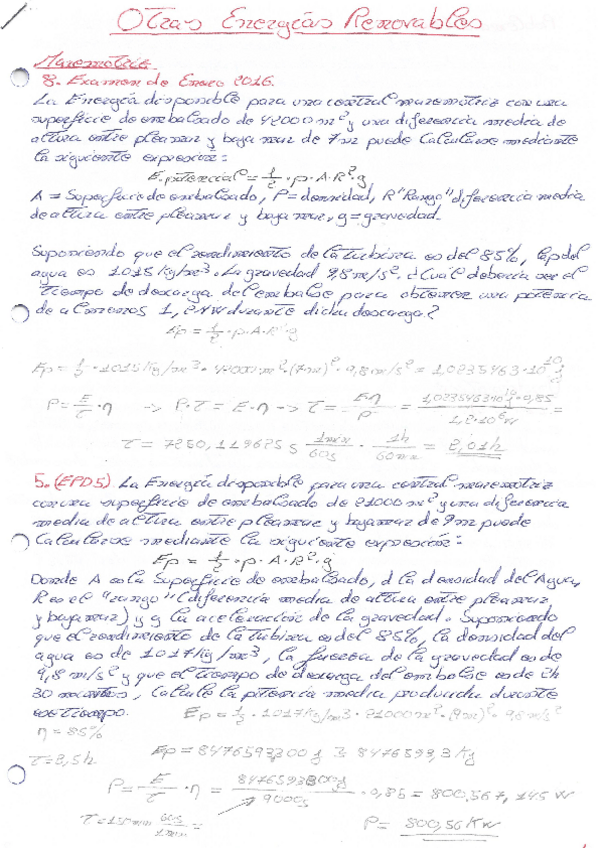 Otras Energías Renovables
Maremotriz
8. Examen de Enero 2016.
La Energía disponible para una central maremotriz con una
superficie de embalsado de 42000 m² y una diferencia media de
altura entre pleamar y bajamar de 7m puede Calcularse mediante
la siguiente expresión:
E.potencial = 1/2 · p · A · R² · g
A = Superficie de embalsado, P = densidad, R "Rango" diferencia media
de altura entre pleamar y bajamar, g = gravedad.
Suponiendo que el rendimiento de la turbina es del 85%, la p del
agua es 1015 Kg/m³. La gravedad 9,8 m/s². ¿Cuál debería ser el
tiempo de descarga del embalse para obtener una potencia
de al menos 1,2 MW durante dicha descarga?
Ep = 1/2 · p · A · R² · g
Ep = 1/2 · 1015 Kg/m³ · 42000 m² · (7m)² · 9,8 m/s² = 1,0235463 · 10¹⁰ J
P = E/τ · η -> P · τ = E · η -> τ = Eη/P = 1,0235463·10¹⁰ J · 0,85 / 1,2·10⁶ W =
τ = 7250,119625 s · 1min/60s · 1h/60min = 2,01h
5. (EPD5). La Energía disponible para una central maremotriz
con una superficie de embalsado de 21000 m² y una diferencia
media de altura entre pleamar y bajamar de 9m puede
Calcularse mediante la siguiente expresión:
Ep = 1/2 · p · A · R² · g
Donde A es la Superficie de embalsado, d la densidad del Agua,
R es el "rango" (diferencia media de altura entre pleamar
y bajamar) y g la aceleración de la gravedad. Suponiendo
que el rendimiento de la turbina es del 85%, la densidad del
agua es de 1017 Kg/m³, la fuerza de la gravedad es de
9,8 m/s² y que el tiempo de descarga del embalse es de 2h
30 minutos, Calcule la potencia media producida durante
ese tiempo.
Ep = 1/2 · 1017 Kg/m³ · 21000 m² · (9m)² · 9,8 m/s²
η = 85%
τ = 2,5h
Ep = 8476593300 J = 8476593,3 KJ
P = E/τ · η = 8476593300 J / 9000s · 0,85 = 800,567,145 W
τ = 150 min · 60s/1min =
P = 800,56 KW